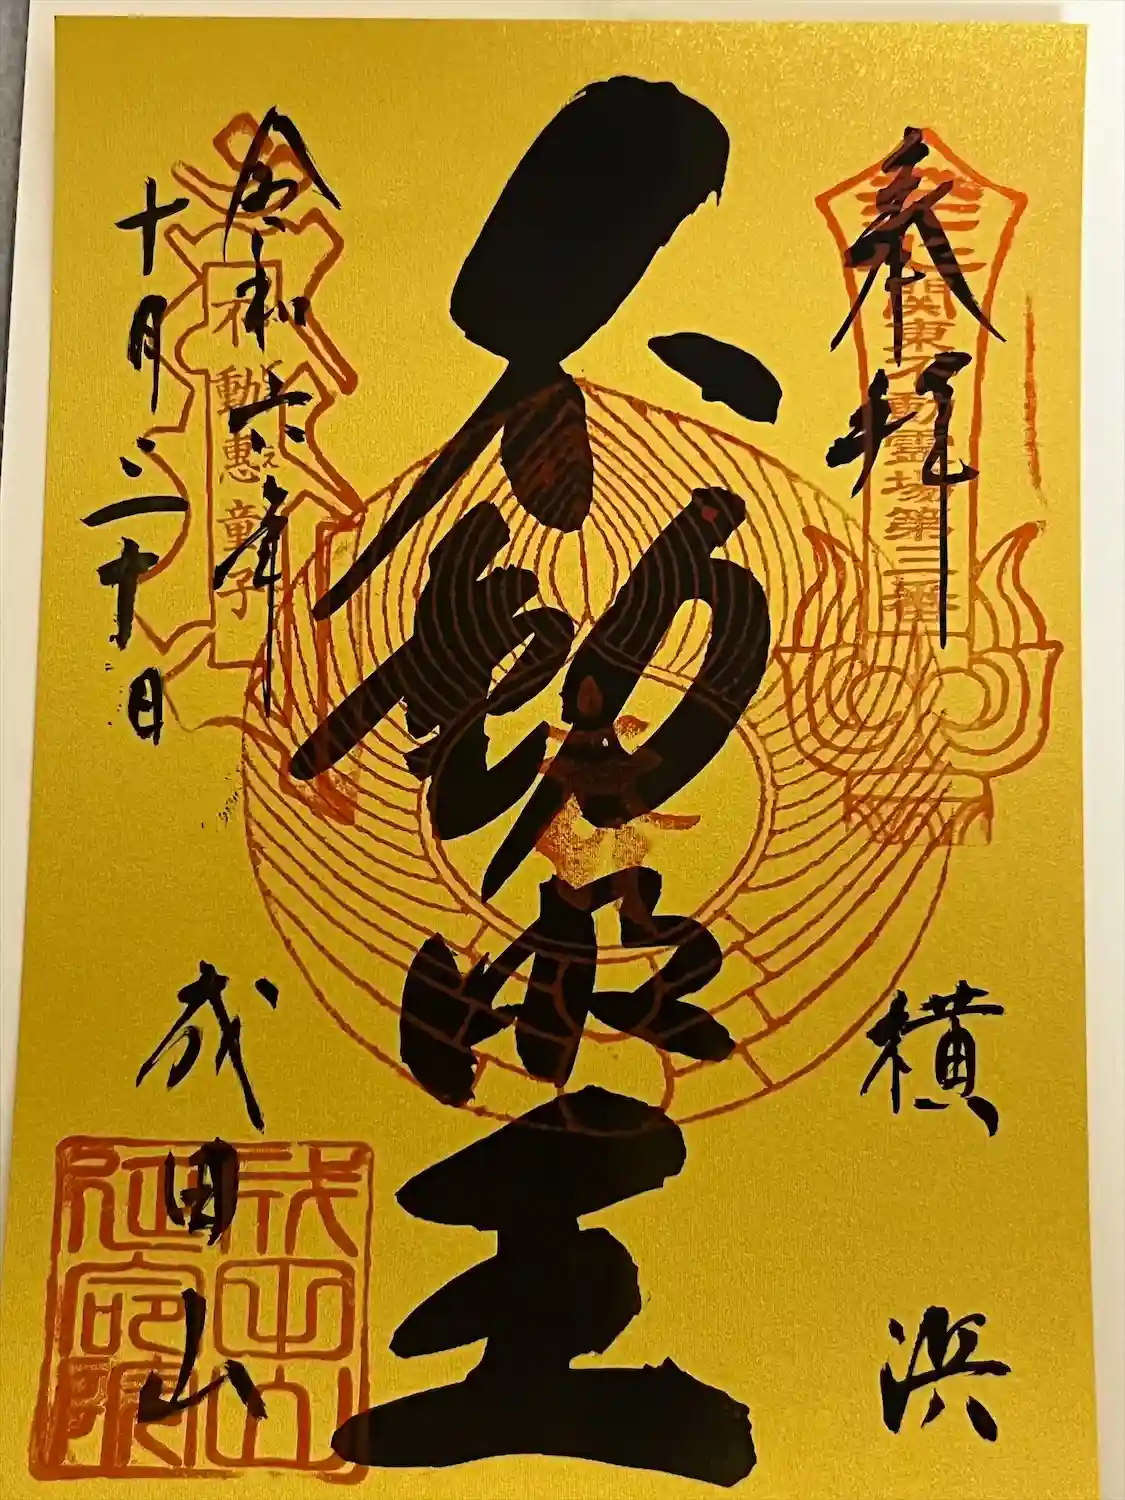 奉拝
関東不動霊場第三番
横浜
不動明王
令和六年
不動惠童子
十月二十日
成田山
成田山
延命院